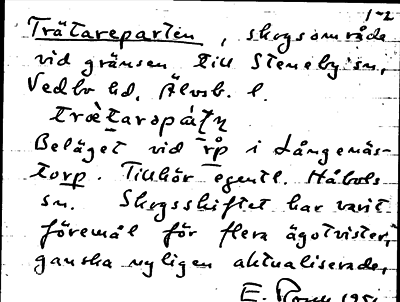 1-2
Trätareparten, skogsområde
vid gränsen till Steneby sn,
Vedbo hd, Älvsb. l.
Beläget vid rp i Långenäs-
torp. Tillhör egentl. Håbols
sn. Skogsskiftet har varit
föremål för flera ägotvister,
ganska nyligen aktualiserade,
E.